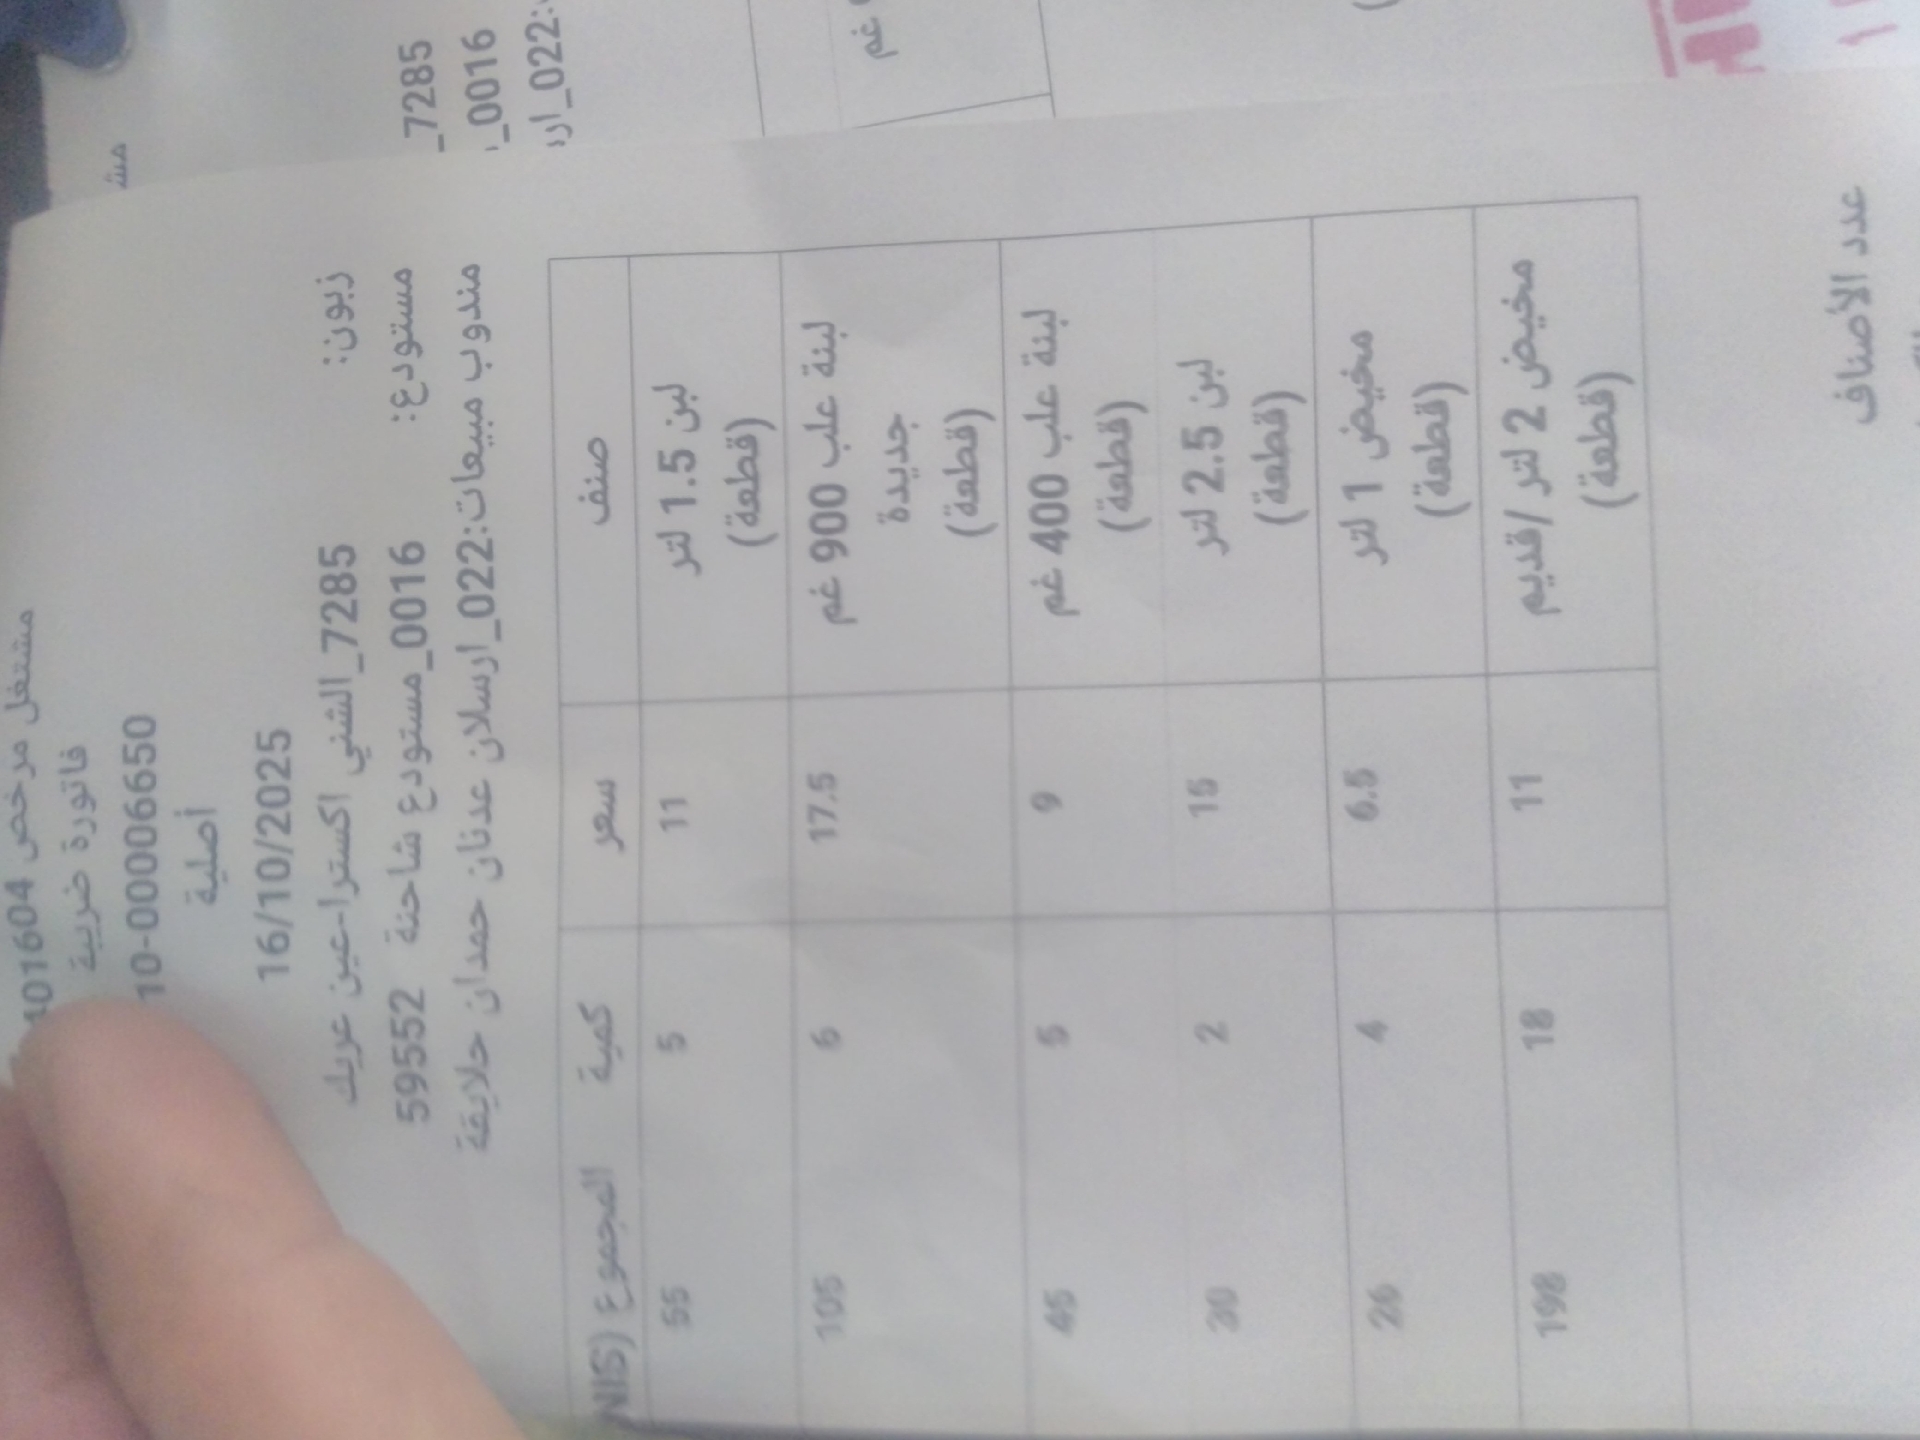 مشتغل مرخص 401604
فاتورة ضريبة
10-00006650
أصلية
16/10/2025
زبون: 7285_الشني اكسترا-عين عريك
مستودع: 0016_مستودع شاحنة 59552
مندوب مبيعات:022_ارسلان عدنان حمدان حلايقة
صنف سعر كمية المجموع (NIS
لبن 1.5 لتر (قطعة) 11 5 55
لبنة علب 900 غم 17.5 6 105
جديدة
(قطعة)
لبنة علب 400 غم 9 5 45
(قطعة)
لبن 2.5 لتر 15 2 30
(قطعة)
مخيض 1 لتر 6.5 4 26
(قطعة)
مخيض 2 لتر /قديم 11 18 198
(قطعة)
عدد الأصناف
7285_
0016_
022_ار
غم